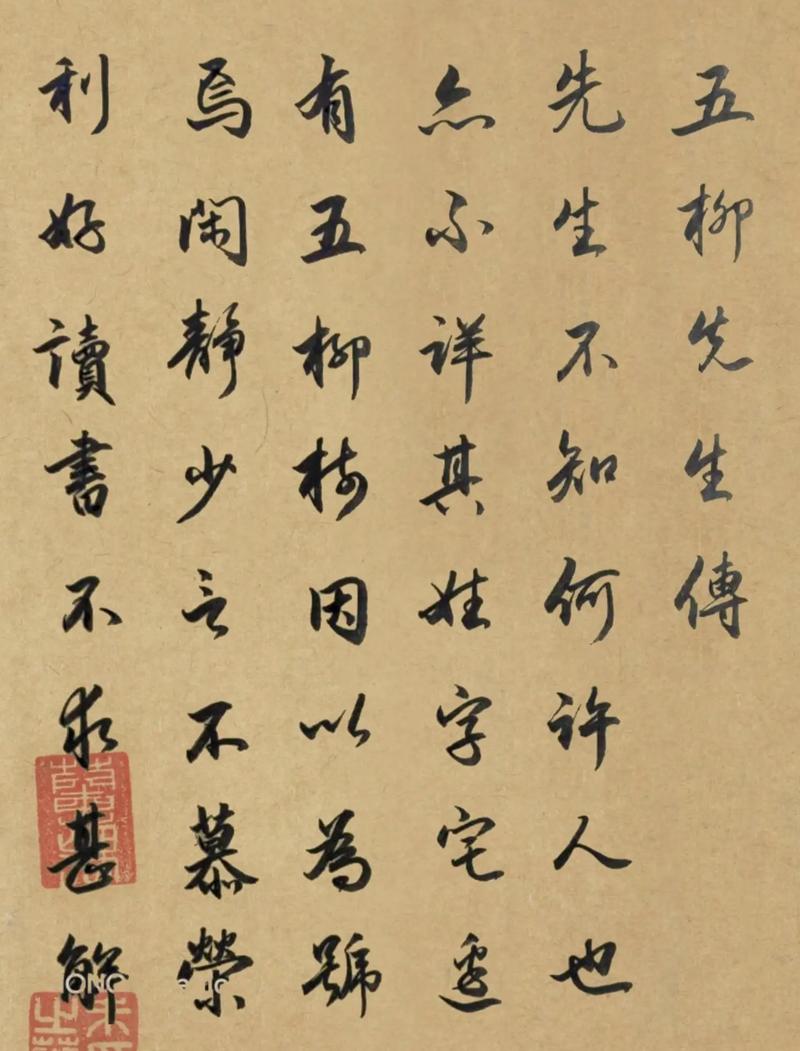 五柳先生傳
先生不知何許人也
亦不詳其姓字宅邊
有五柳樹因以為號
焉閑靜少言不慕榮
利好讀書不求甚解